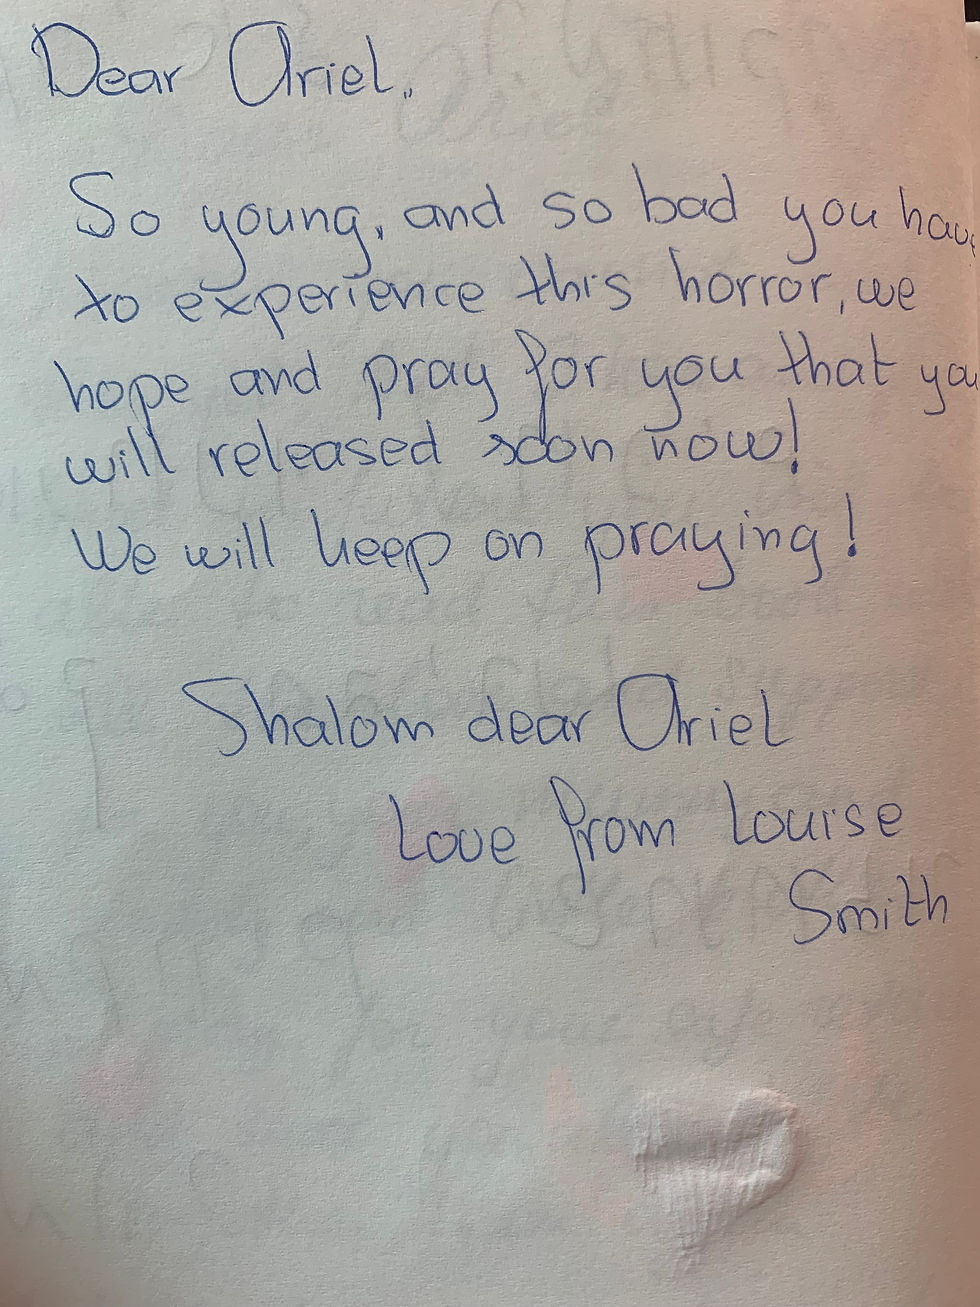 Dear Ariel,,
So young, and so bad you have
to experience this horror, we
hope and pray for you that you
will released soon now!
We will keep on praying!
Shalom dear Ariel
Love from Louise
Smith